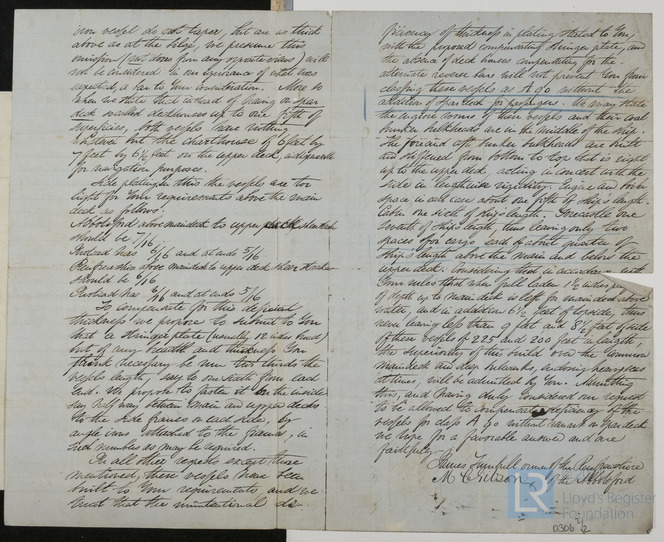 iron vessel do not taper, but are as thick
above as at the bilge, we presume this
omission (not done from any opposite views) will
not be considered in our ignorance of what was
expected, a bar to Your consideration. More so
when we state that instead of having an open
deck washed deckhouses up to one fifth of
Superficies, both vessels have nothing
whatever but the Charthouse of 6 feet by
7 feet by 6½ feet on the upper deck, indispensable
for navigation purposes.
Side plating in this the vessels are too
light for Your requirements above the main
deck as follows:
Abbotsford above maindeck to upper deck
should be 7/16
Instead has 6/16 and at ends 5/16
Renfrewshire above maindeck to upper deck
should be 6/16
Instead has 6/16 and at ends 5/16
To compensate for this deficient
thickness we propose to submit to You
that a Stringer plate (usually 12 inches broad)
but of any breadth and thickness You
think necessary be run two thirds the
vessels length, say to one sixth from each
End. We propose to fasten it on the inside
say half way between main and upper decks
to the side frames on each side, by
angle irons attached to the frames, in
such numbers as may be required.
In all other respects except those
mentioned, these vessels have been
built to Your requirements and we
trust that the unintentional de-
ficiency of thickness in plating stated to You
with the proposed compensating stringer plate, and
the absence of deck houses compensating for the
alternate reverse bars will not prevent You from
classing these vessels as A 90 without the
addition of spardeck for passengers. We may state
the engine rooms of these vessels and their coal
bunker bulkheads are in the middle of the ship.
The fore and aft bunker bulkheads are built
and stiffened from bottom to top that is right
up to the upper deck, acting in concert with the
side in lengthwise rigidity. Engine and boiler
space in each case about one fifth of ship's length.
Cabin one sixth of ship's length. Forecastle one
seventh of ship's length, thus leaving only two
spaces for cargo each of about quarter of
ship's length above the main and below the
upper deck. Considering these in accordance with
Your rules that when fully laden 1½ inches per
of depth up to main deck is left for maindeck above
water, and in addition 6½ feet of topside, thus
never leaving less than 9 feet and 8½ feet of side
of these vessels of 225 and 200 feet in length,
the superiority of this build over the common
maindeck and deep bulwarks, enclosing heavy seas
at times, will be admitted by You. Admitting
this, and having duly considered our request
to be allowed to compensate deficiency of the
vessels for class A 90 without remark on spardeck
we hope for a favorable answer and are
faithfully
James Turnbull owner of the Renfrewshire
of the Abbotsford
LR
Lloyd's Register
Foundation
0306 2/2